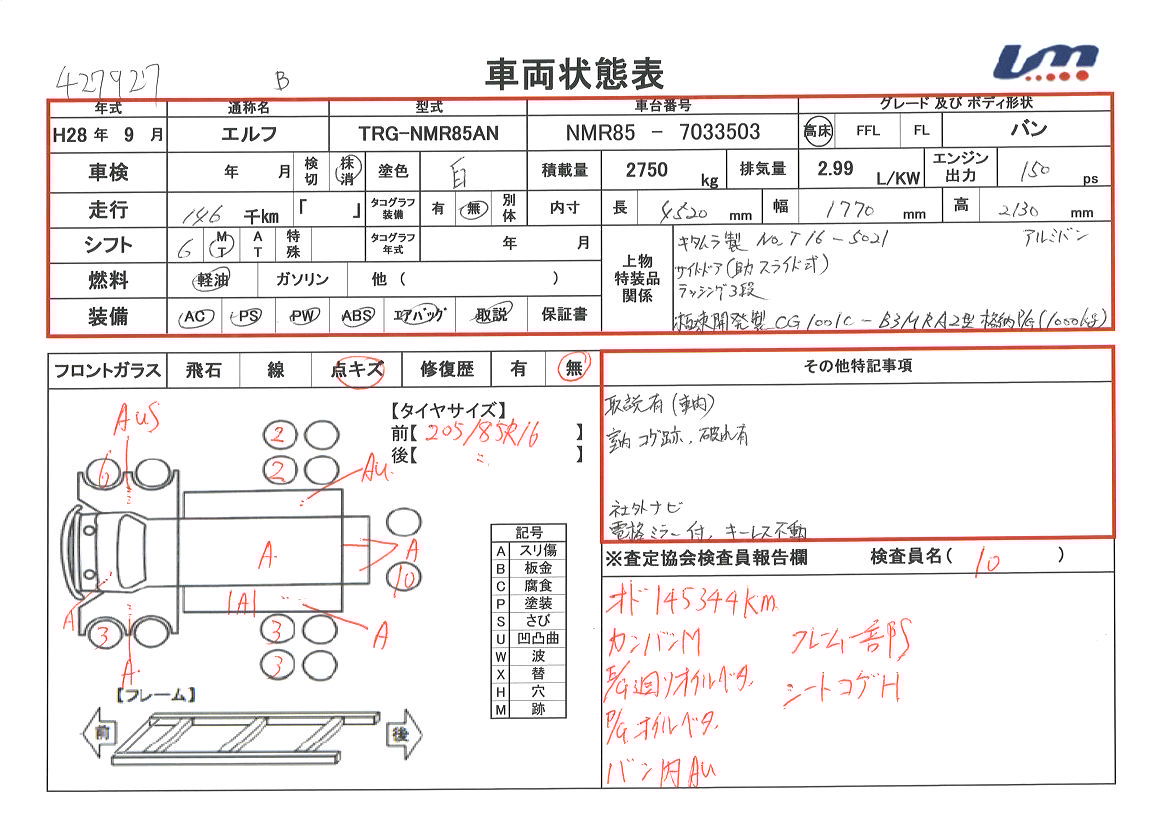 427927 B 車両状態表
年式 通称名 型式 車台番号 グレード 及び ボディ形状
H28 年 9 月 エルフ TRG-NMR85AN NMR85 - 7033503 高床 FFL FL バン
車検 年 月 検切 抹消 塗色 白 積載量 2750 kg 排気量 2.99 L/KW エンジン出力 150 ps
走行 146 千km 「 」 タコグラフ装備 有 無 別体 内寸 長 4520 mm 幅 1770 mm 高 2130 mm
シフト 6 MT AT 特殊 タコグラフ年式 年 月
燃料 軽油 ガソリン 他 ( )
装備 AC PS PW ABS エアバッグ 取説 保証書
上物特装品関係
キタムラ製 No.T16-5021 アルミバン
サイドドア(助 スライド式)
ラッシング3段
極東開発製 CG1001C-B3MRA2型 格納P/G(1000kg)
フロントガラス 飛石 線 点キズ 修復歴 有 無
その他特記事項
取説有(車内)
室内 コゲ跡、破れ有
社外ナビ
電格ミラー付、キーレス不動
【タイヤサイズ】
前【 205/85R16 】
後【 〃 】
AUS
6
2
2
AU
A
A
10
A
A
A
A
3
3
3
A
記号
A スリ傷
B 板金
C 腐食
P 塗装
S さび
U 凹凸曲
W 波
X 替
H 穴
M 跡
【フレーム】
前 後
※査定協会検査員報告欄 検査員名( 10 )
オド 145344km
カンバンM フレーム一部PS
E/G廻りオイルベタ シートコゲH
P/Gオイルベタ
バン内AU